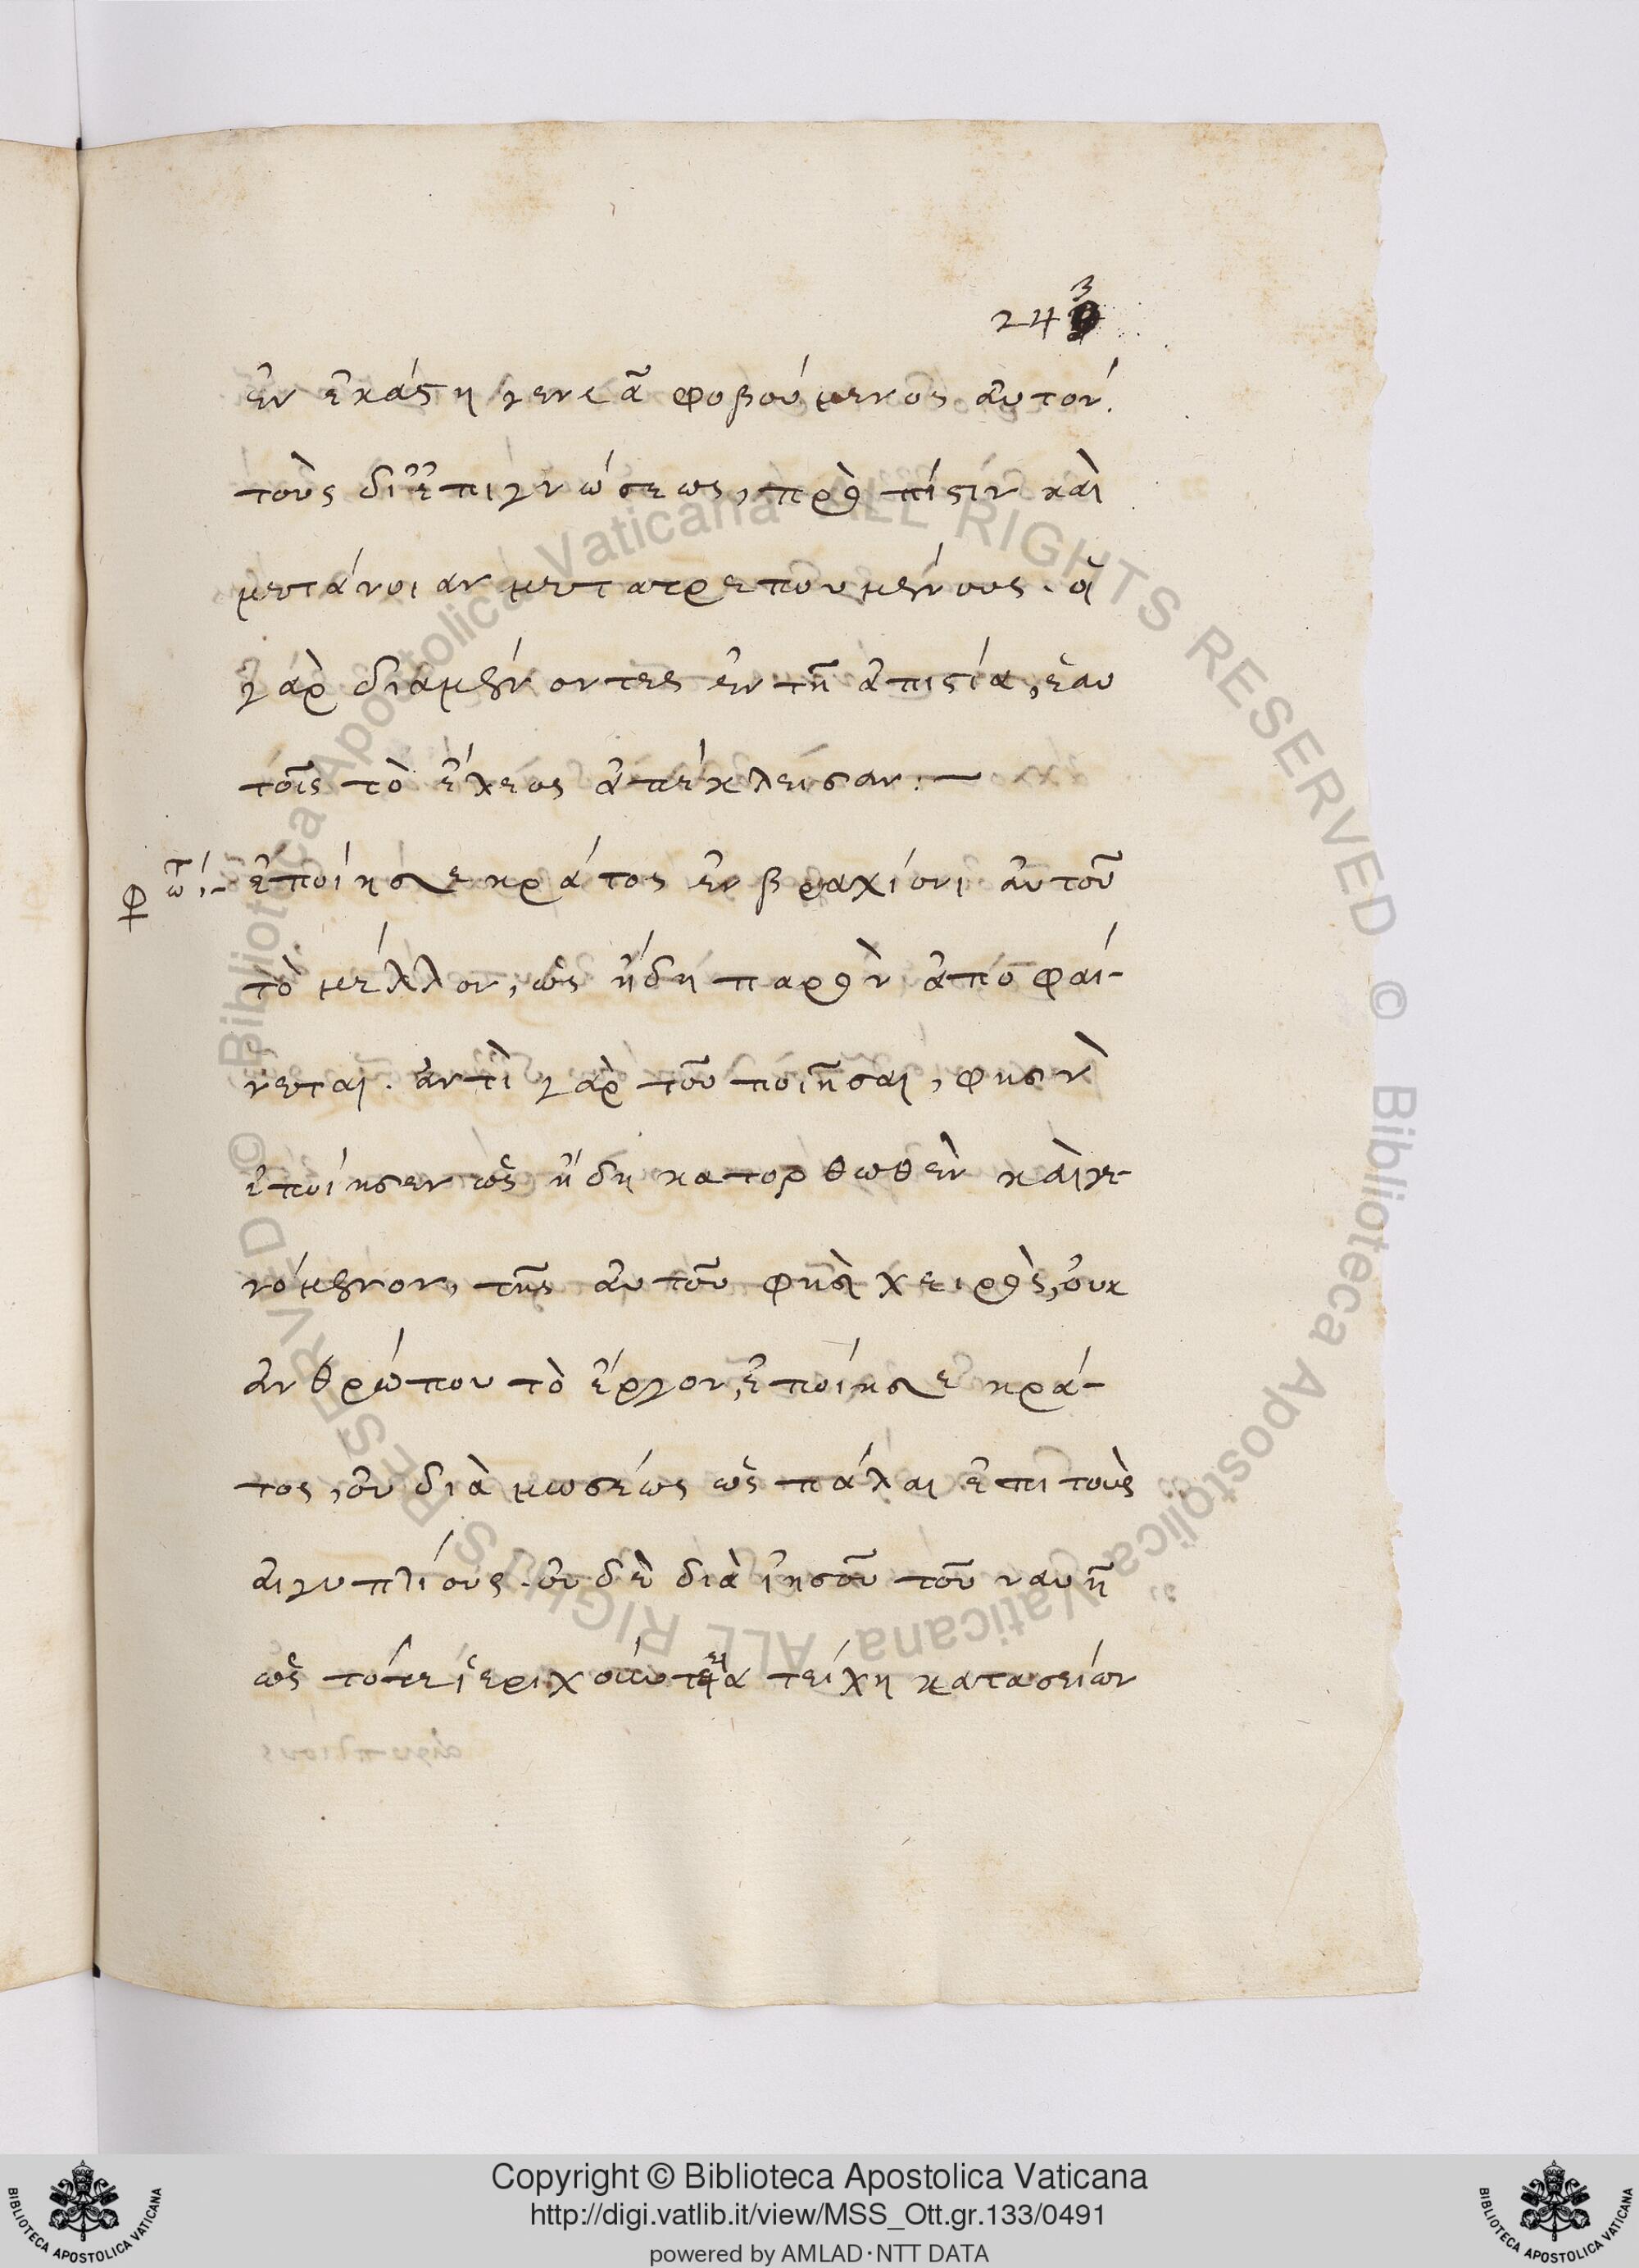 243
ἐν ἑκάστη γενεᾶ φοβούμενος αὐτόν.
τοὺς δι' ἐπιγνώσεως, πρὸς πίστιν καὶ
μετάνοιαν μετατρεπουμένους. οἱ
γὰρ διαμένοντες ἐν τῆ ἀπιστία, ἑαυ
τοῖς τὸ ἔλεος ἀπέκλεισαν:—
ἐποίησε κράτος ἐν βραχίονι αὐτοῦ
τὸ μέλλον, ὡς ἤδη παρὸν ἀποφαί-
νεται. ἀντὶ γὰρ τοῦ ποιῆσαι, φησὶν
ἐποίησεν ὡς ἤδη κατορθωθὲν καὶ γε-
νόμενον, τῆς αὐτοῦ φησὶ χειρὸς, οὐκ
ἀνθρώπου τὸ ἔργον, ἐποίησε κρά-
τος, οὐ διὰ μωσέως ὡς πάλαι ἐπι τοὺς
αἰγυπτίους. οὐδὲ διὰ ἰησοῦ τοῦ ναυῆ
ὡς τότε τείχη κατασείων
Copyright © Biblioteca Apostolica Vaticana
http://digi.vatlib.it/view/MSS_Ott.gr.133/0491
powered by AMLAD·NTT DATA
BIBLIOTECA APOSTOLICA VATICANA
BIBLIOTECA APOSTOLICA VATICANA
© Biblioteca Apostolica Vaticana ALL RIGHTS RESERVED © Biblioteca Apostolica Vaticana ALL RIGHTS RESERVED